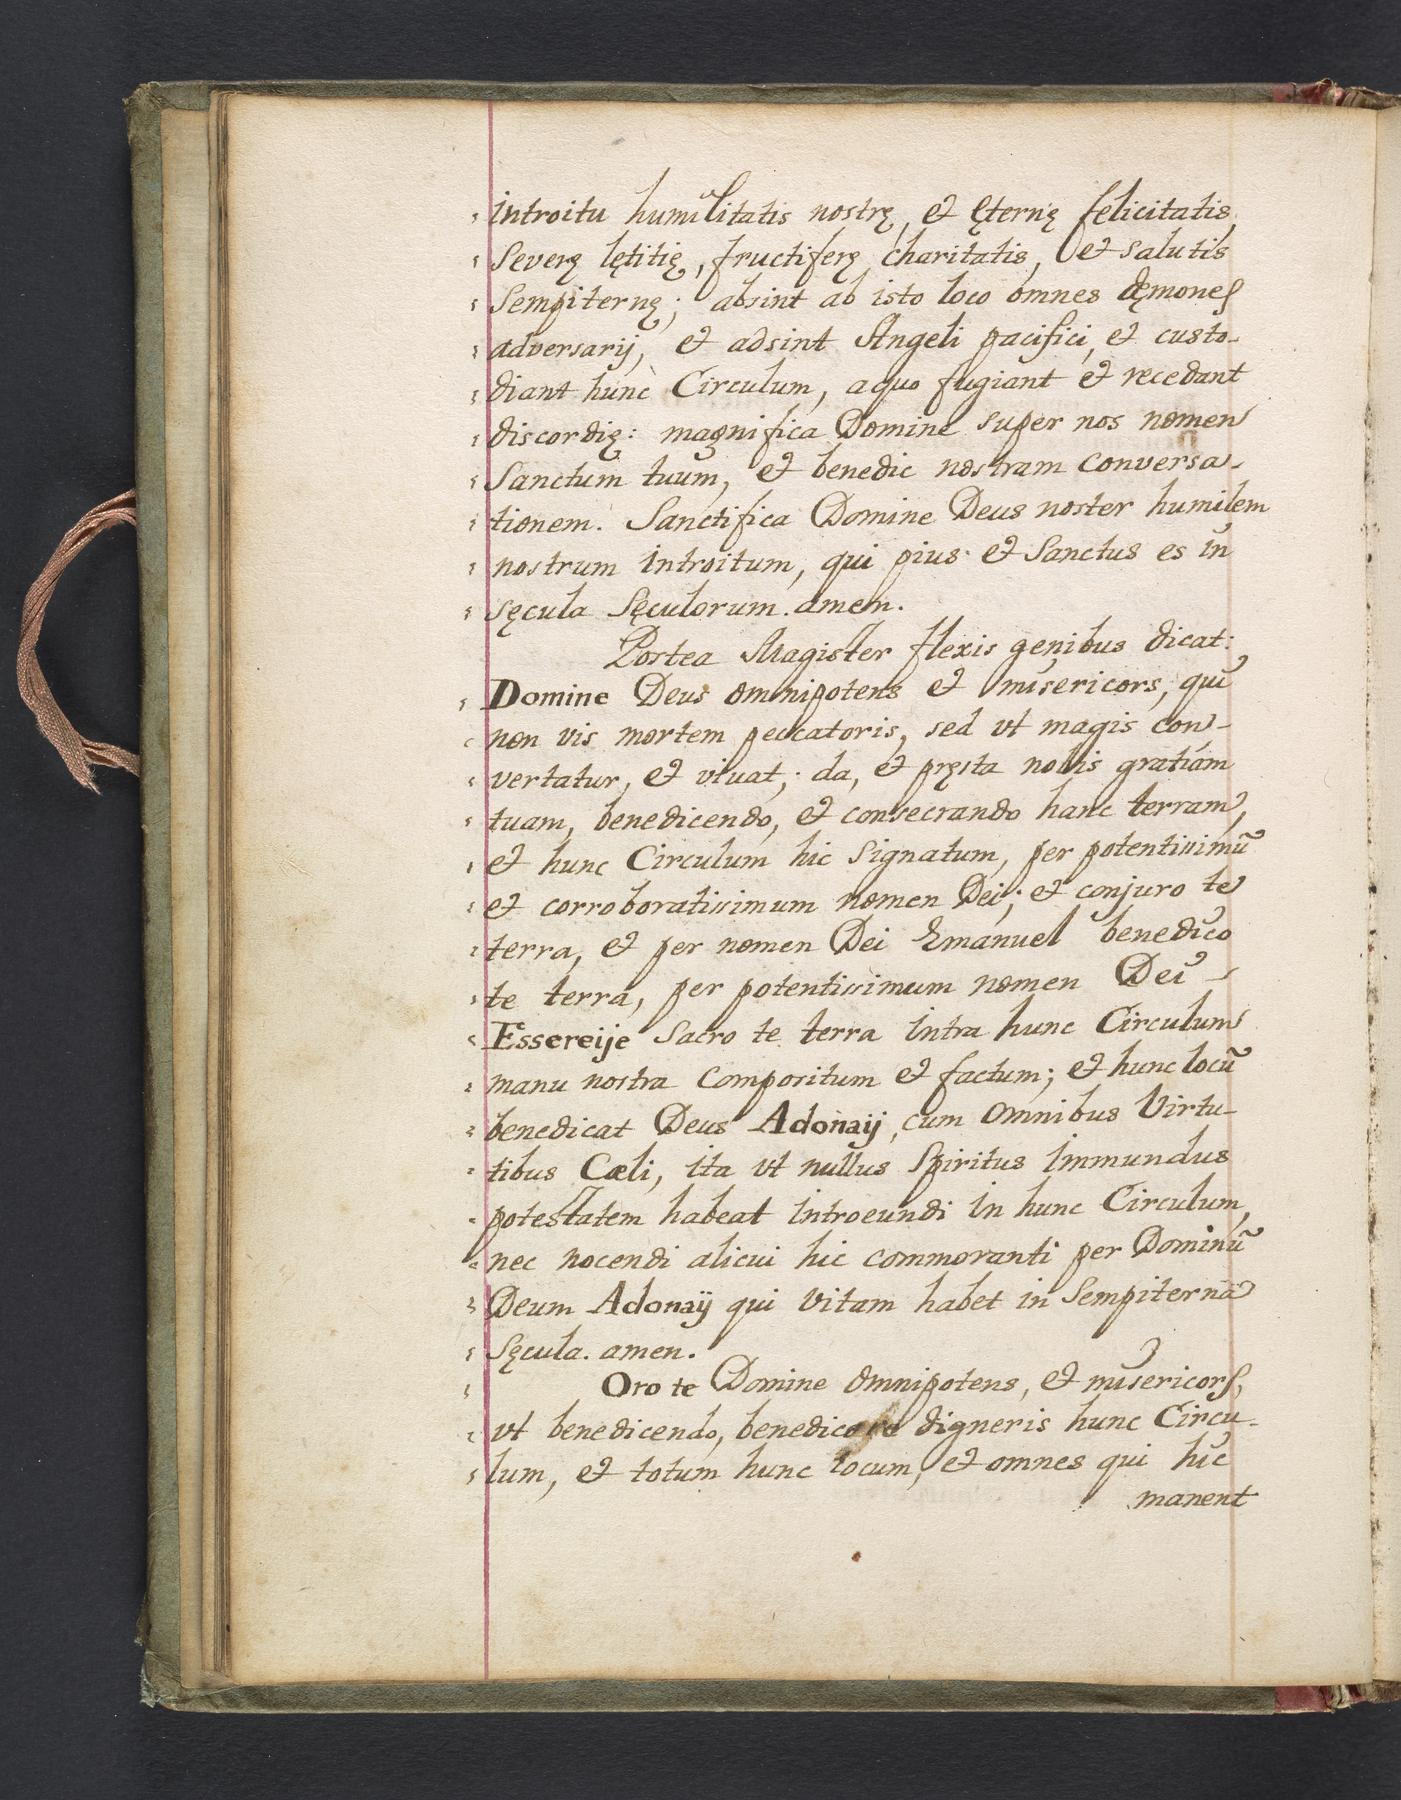 introitu humilitatis nostrę, et ęternę felicitatis,
severę lętitię, fructiferę charitatis, et salutis
sempiternę; absint ab isto loco omnes dęmones
adversarij, et adsint Angeli pacifici, et custo-
diant hunc Circulum, a quo fugiant et recedant
discordię: magnifica Domine super nos nomen
Sanctum tuum, et benedic nostram conversa-
tionem. Sanctifica Domine Deus noster humilem
nostrum introitum, qui pius et Sanctus es in
sęcula sęculorum. amen.
Postea Magister flexis genibus dicat:
Domine Deus omnipotens et misericors, qui
non vis mortem peccatoris, sed vt magis con-
vertatur, et vivat; da, et pręsta nobis gratiam
tuam, benedicendo, et consecrando hanc terram,
et hunc Circulum hic signatum, per potentissimū
et corroboratissimum nomen Dei; et conjuro te
terra, et per nomen Dei Emanuel benedico
te terra, per potentissimum nomen Dei -
Essereije sacro te terra intra hunc Circulum
manu nostra compositum et factum; et hunc locū
benedicat Deus Adonaij, cum omnibus Virtu-
tibus Cæli, ita vt nullus Spiritus immundus
potestatem habeat introeundi in hunc Circulum,
nec nocendi alicui hic commoranti per Dominū
Deum Adonaÿ qui vitam habet in sempiterna
sęcula. amen.
Oro te Domine omnipotens, et misericors,
vt benedicendo, benedicere digneris hunc Circu-
lum, et totum hunc locum, et omnes qui hic
manent